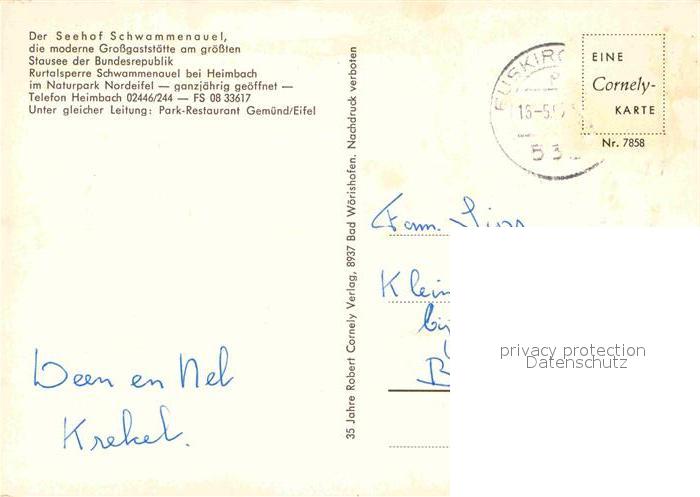 Der Seehof Schwammenauel,
die moderne Großgaststätte am größten
Stausee der Bundesrepublik
Rurtalsperre Schwammenauel bei Heimbach
im Naturpark Nordeifel — ganzjährig geöffnet —
Telefon Heimbach 02446/244 — FS 08 33617
Unter gleicher Leitung: Park-Restaurant Gemünd/Eifel
35 Jahre Robert Cornely Verlag, 8937 Bad Wörishofen. Nachdruck verboten
EINE
Cornely-
KARTE
Nr. 7858
EUSKIRC
16-5
53
Fam.
Klein
B
privacy protection
Datenschutz
Deen en Nel
Krekel.